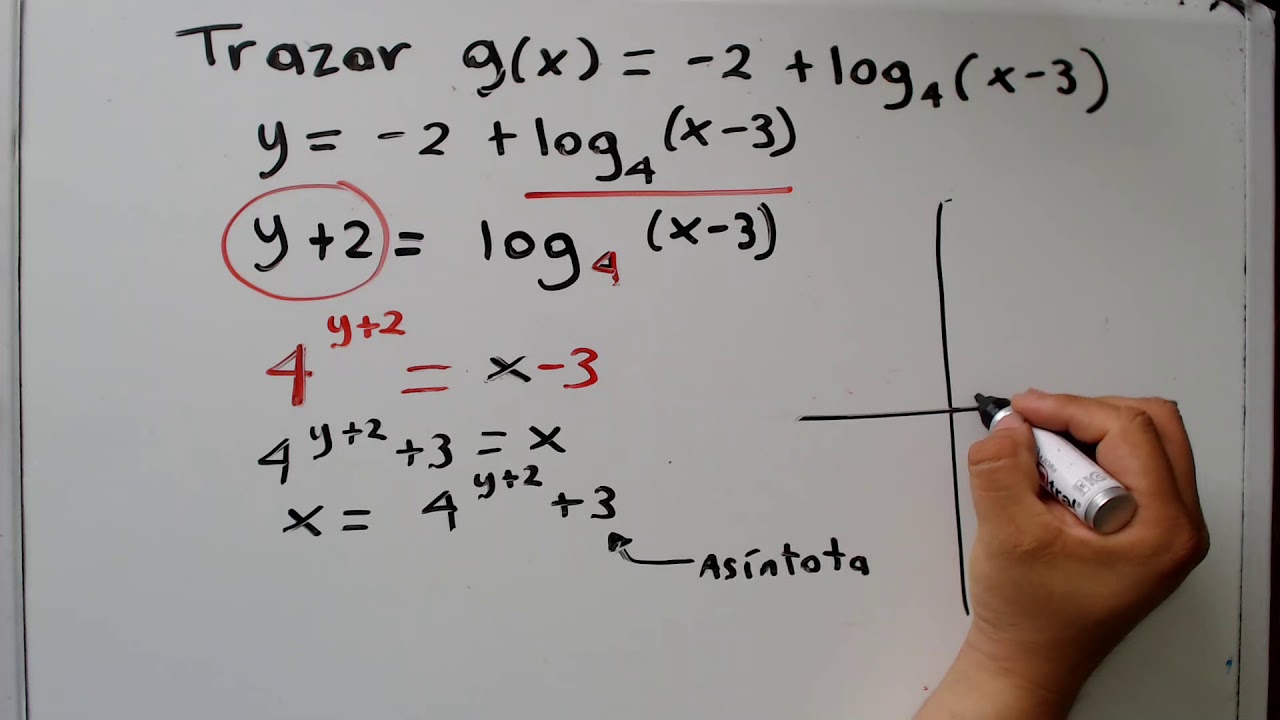 Trazar g(x) = -2 + log₄(x-3)
y = -2 + log₄(x-3)
y+2 = log₄(x-3)
4^(y+2) = x-3
4^(y+2) +3 = x
x = 4^(y+2) +3
Asíntota